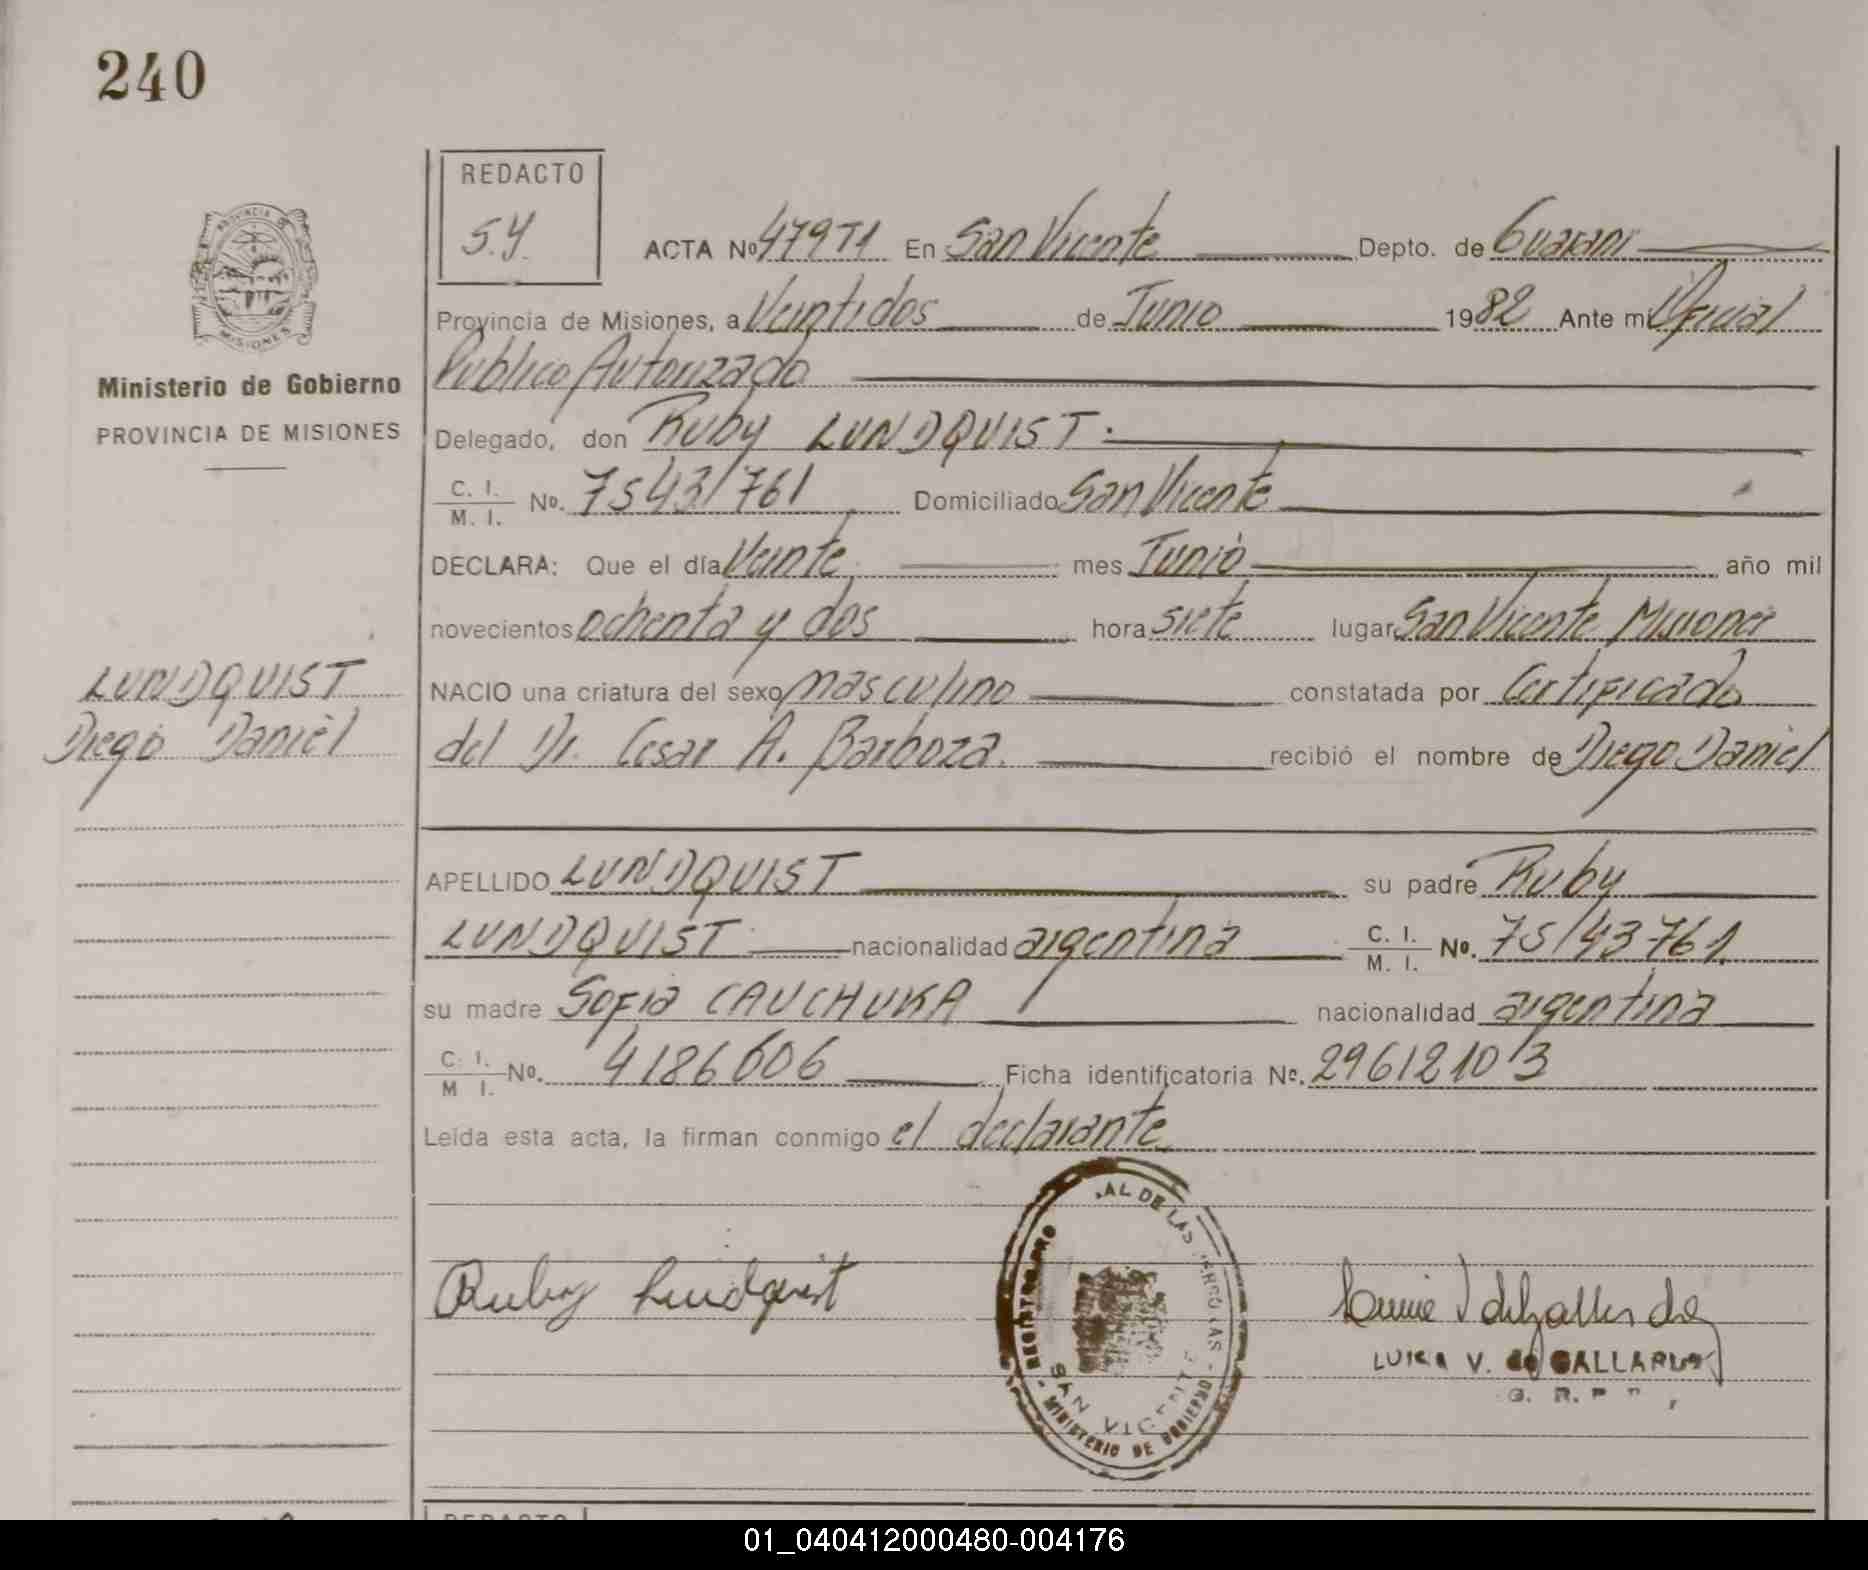 240
REDACTO
S.Y.
ACTA Nº 479T1 En San Vicente Depto. de Guarani
Provincia de Misiones, a Veintidos de Junio 1982 Ante mi Oficial
Publico Autorizado
Ministerio de Gobierno
PROVINCIA DE MISIONES
Delegado, don Ruby LUNDQUIST.
C. I. / M. I. No. 7543/761 Domiciliado San Vicente
DECLARA: Que el día Veinte mes Junio año mil
novecientos ochenta y dos hora siete lugar San Vicente Misiones
LUNDQUIST
Diego Daniel
NACIO una criatura del sexo masculino constatada por Certificado
del Dr. Cesar A. Barboza. recibió el nombre de Diego Daniel
APELLIDO LUNDQUIST su padre Ruby
LUNDQUIST nacionalidad argentina C. I. / M. I. No. 75/43761.
su madre Sofia CAUCHUKA nacionalidad argentina
C. I. / M I. No. 4186606 Ficha identificatoria No. 29612103
Leída esta acta, la firman conmigo el declarante
Ruby Lundquist
AL DE LAS
REGISTRO PRO
SAN VICENTE
MINISTERIO DE GOBIERNO
LUISA V. de GALLARDO
REDACTO
01_040412000480-004176